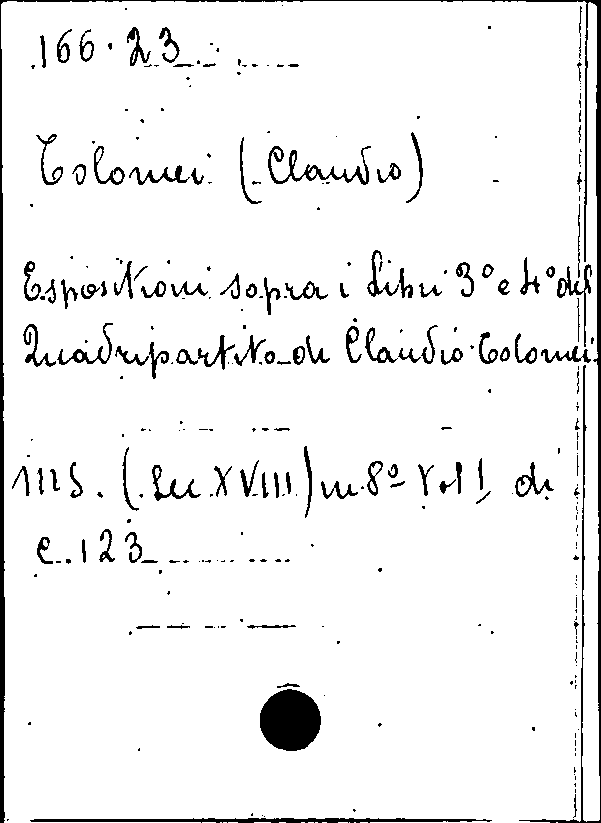 166.23
Tolomei (Claudio)
Espositioni sopra i Libri 3° e 4° del
Quadripartito di Claudio Tolomei.
MS. (Sec XVIII) in 8º Vol 1 di
c. 123